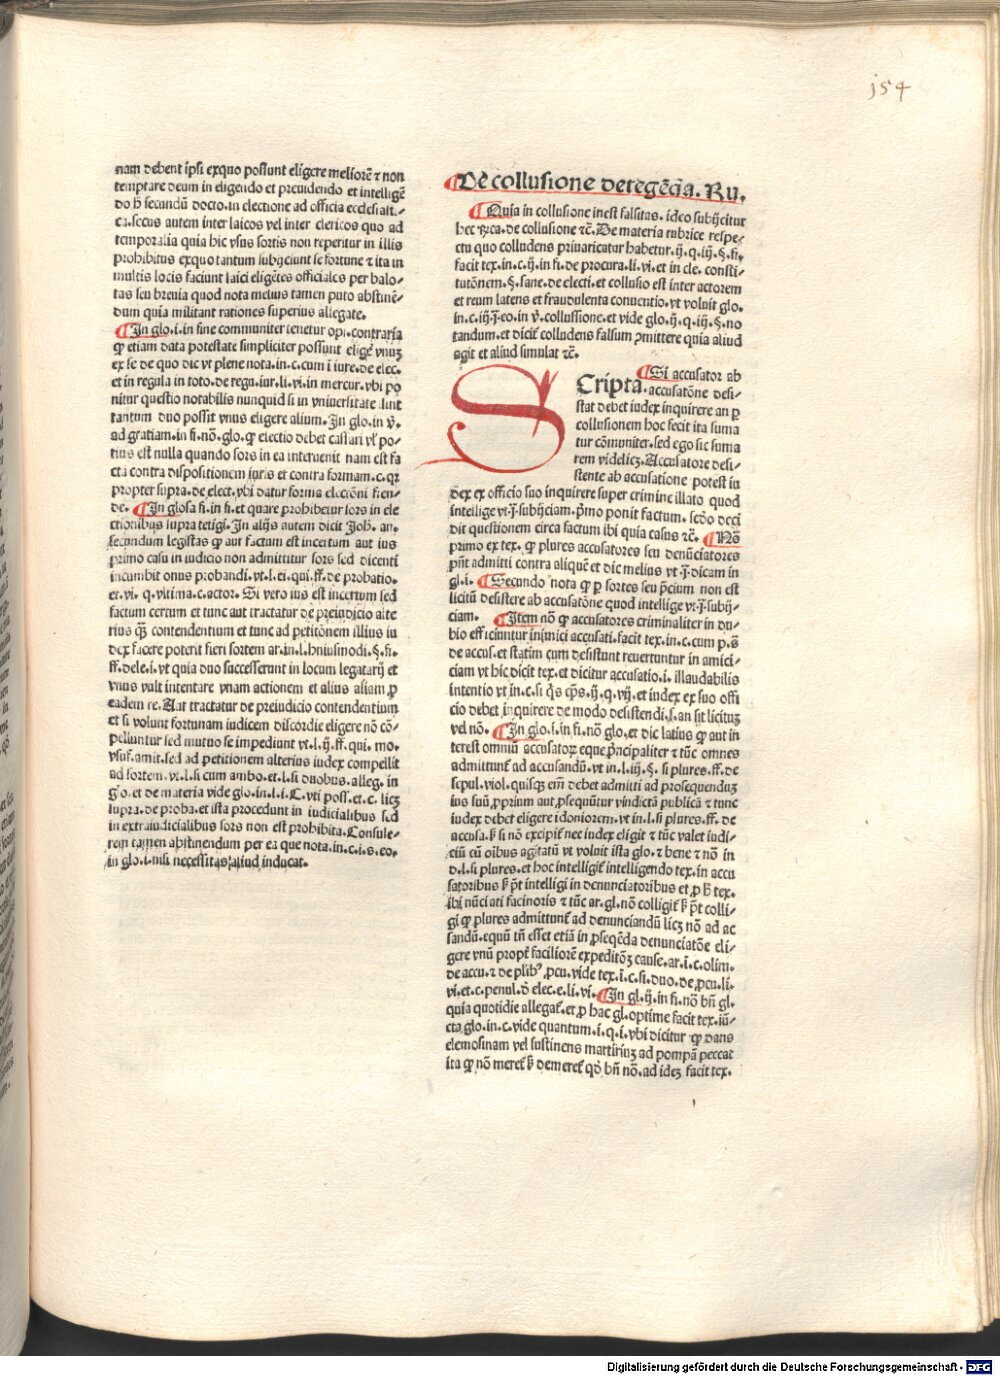 154
nam debent ipsi exquo possunt eligere meliorē ⁊ non
temptare deum in eligendo et preuidendo et intelligē
do h̄ secundū docto.in electione ad officia ecclesiast.⸗
ca.secus autem inter laicos vel inter clericos quo ad
temporalia quia hic vsus sortis non reperitur in illis
prohibitus exquo tantum subijciunt se fortune ⁊ ita in
multis locis faciunt laici eligētes officiales per balo⸗
tas seu breuia quod nota melius tamen puto abstinē⸗
dum quia militant rationes superius allegate.
¶In glo.i.in fine communiter tenetur opi.contraria
ꝙ etiam data potestate simpliciter possunt eligē vnuꝫ
ex se de quo dic vt plene nota.in.c.cum ī iure.de elec.
et in regula in toto.de regu.iur.li.vi.in mercur.vbi po
nitur questio notabilis nunquid si in vniuersitate sint
tantum duo possit vnus eligere alium. In glo.in v̄.
ad gratiam.in fi.nō.glo.ꝙ electio debet cassari vl' po⸗
tius est nulla quando sors in ea interuenit nam est fa
cta contra dispositionem iuris et contra formam.c.qꝛ
propter supra.de elect.vbi datur forma electiōni fien⸗
de. ¶In glosa fi.in fi.et quare prohibetur sors in ele
ctionibus supra tetigi. In alijs autem dicit Joh. an.
secundum legistas ꝙ aut factum est incertum aut ius
primo casu in iudicio non admittitur sors sed dicenti
incumbit onus probandi.vt.l.ei.qui.ff.de probatio.
et.vi.q.vltima.c.actor. Si vero ius est incertum sed
factum certum et tunc aut tractatur de preiudicio alte
rius qꝫ̄ contendentium et tunc ad petitōnem illius iu
dex facere poterit fieri sortem ar.in.l.huiusmodi.§.fi.
ff.de le.i.vt quia duo successerunt in locum legatarij et
vnus vult intentare vnam actionem et alius aliam ꝓ
eadem re. Aut tractatur de preiudicio contendentium
et si volunt fortunam iudicem discordie eligere nō cō⸗
pelluntur sed mutuo se impediunt vt.l.ij.ff.qui.mo.
vsuf.amit.sed ad petitionem alterius iudex compellit
ad sortem.vt.l.si cum ambo.et.l.si duobus.alleg. in
glo.et de materia vide glo.in.l.i.C.vti poss.et.c. licꝫ
supra.de proba.et ista procedunt in iudicialibus sed
in extraiudicialibus sors non est prohibita. Consule⸗
rem tamen abstinendum per ea que nota.in.c.i.s.eo.
in glo.i.nisi necessitas aliud inducat.
¶De collusione detegēda. Ru.
¶Quia in collusione inest falsitas.ideo subijcitur
hec rca.de collusione ⁊c̄. De materia rubrice respe⸗
ctu quo colludens priuaricatur habetur.ij.q.iij.§.fi.
facit tex.in.c.ij.in fi.de procura.li.vi.et in cle. consti⸗
tutōnem.§.sane.de electi.et collusio est inter actorem
et reum latens et fraudulenta conuentio.vt voluit glo.
in.c.iij.ī.eo.in v̄.collussione.et vide glo.ij.q.iij.§.no
tandum.et dicit̄ colludens falsum ꝓmittere quia aliud
agit et aliud simulat ⁊c̄.
¶Si accusator ab
SCripta.accusatōne desi⸗
stat debet iudex inquirere an ꝑ
collusionem hoc fecit ita suma
tur cōmuniter.sed ego sic suma
rem videlicꝫ. Accusatore desi⸗
stente ab accusatione potest iu
dex ex officio suo inquirere super crimine illato quod
intellige vt.ī.subijciam.p̄mo ponit factum. scd̄o deci
dit questionem circa factum ibi quia casus ⁊c̄. ¶Nō
primo ex tex. ꝙ plures accusatores seu denūciatores
pn̄t admitti contra aliquē et dic melius vt.ī.dicam in
gl.i. ¶Secundo nota ꝙ ꝑ sortes seu p̄cium non est
licitū desistere ab accusatōne quod intellige vt.ī.subij⸗
ciam. ¶Item nō ꝙ accusatores criminaliter in du⸗
bio efficiuntur inimici accusati.facit tex.in.c.cum p.s̄
de accus.et statim cum desistunt reuertuntur in amici⸗
ciam vt hic dicit tex.et dicitur accusatio.i. illaudabilis
intentio vt in.c.si q̄s cp̄s.ij.q.vij.et iudex ex suo offi
cio debet inquirere de modo desistendi.s.an sit licituꝫ
vel nō. ¶In glo.i.in fi.nō glo.et dic latius ꝙ aut in
terest omniū accusatoꝝ eque p̄ncipaliter ⁊ tūc omnes
admittunt̄ ad accusandū.vt in.l.iij.§. si plures.ff.de
sepul.viol.quisqꝫ em̄ debet admitti ad prosequenduꝫ
ius suū ꝓprium aut ꝓsequūtur vindictā publicā ⁊ tunc
iudex debet eligere idoniorem.vt in.l.si plures.ff. de
accusa.ꝶ si nō excipit̄ nec iudex eligit ⁊ tūc valet iudi⸗
ciū cū oībus agitatū vt voluit ista glo.⁊ bene ⁊ nō in
d.l.si plures.et hoc intelligit̄ intelligendo tex.in accu
satoribus ꝶ p̄t intelligi in denunciatoribus et ꝓ h̄ tex.
ibi nūciati facinoris ⁊ tūc ar.gl.nō colligit̄ ꝶ p̄t colli⸗
gi ꝙ plures admittunt̄ ad denunciandū licꝫ nō ad ac
sandū.equū tn̄ esset etiā in ꝓseqēda denunciatōe eli⸗
gere vnū propt̄ faciliorē expeditōꝫ cause.ar.i.c.olim.
de accu.⁊ de plib' ꝓcu.vide tex.ī.c.si.duo.de ꝓcu.li.
vi.et.c.penul.d̄ elec.e.li.vi. ¶In gl.ij.in fi.nō bn̄ gl.
quia quotidie allegat̄.et ꝓ hac gl.optime facit tex.iū⸗
cta glo.in.c.vide quantum.i.q.i.vbi dicitur ꝙ dans
elemosinam vel sustinens martiriuꝫ ad pompā peccat
ita ꝙ nō meret̄ ꝶ demeret̄ qd̄ bn̄ nō.ad ideꝫ facit tex.
Digitalisierung gefördert durch die Deutsche Forschungsgemeinschaft - DFG